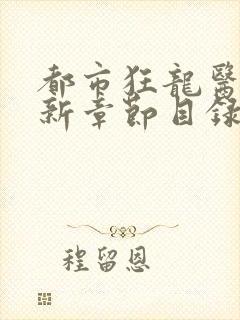 都市狂龍醫
新章節目錄
程留恩